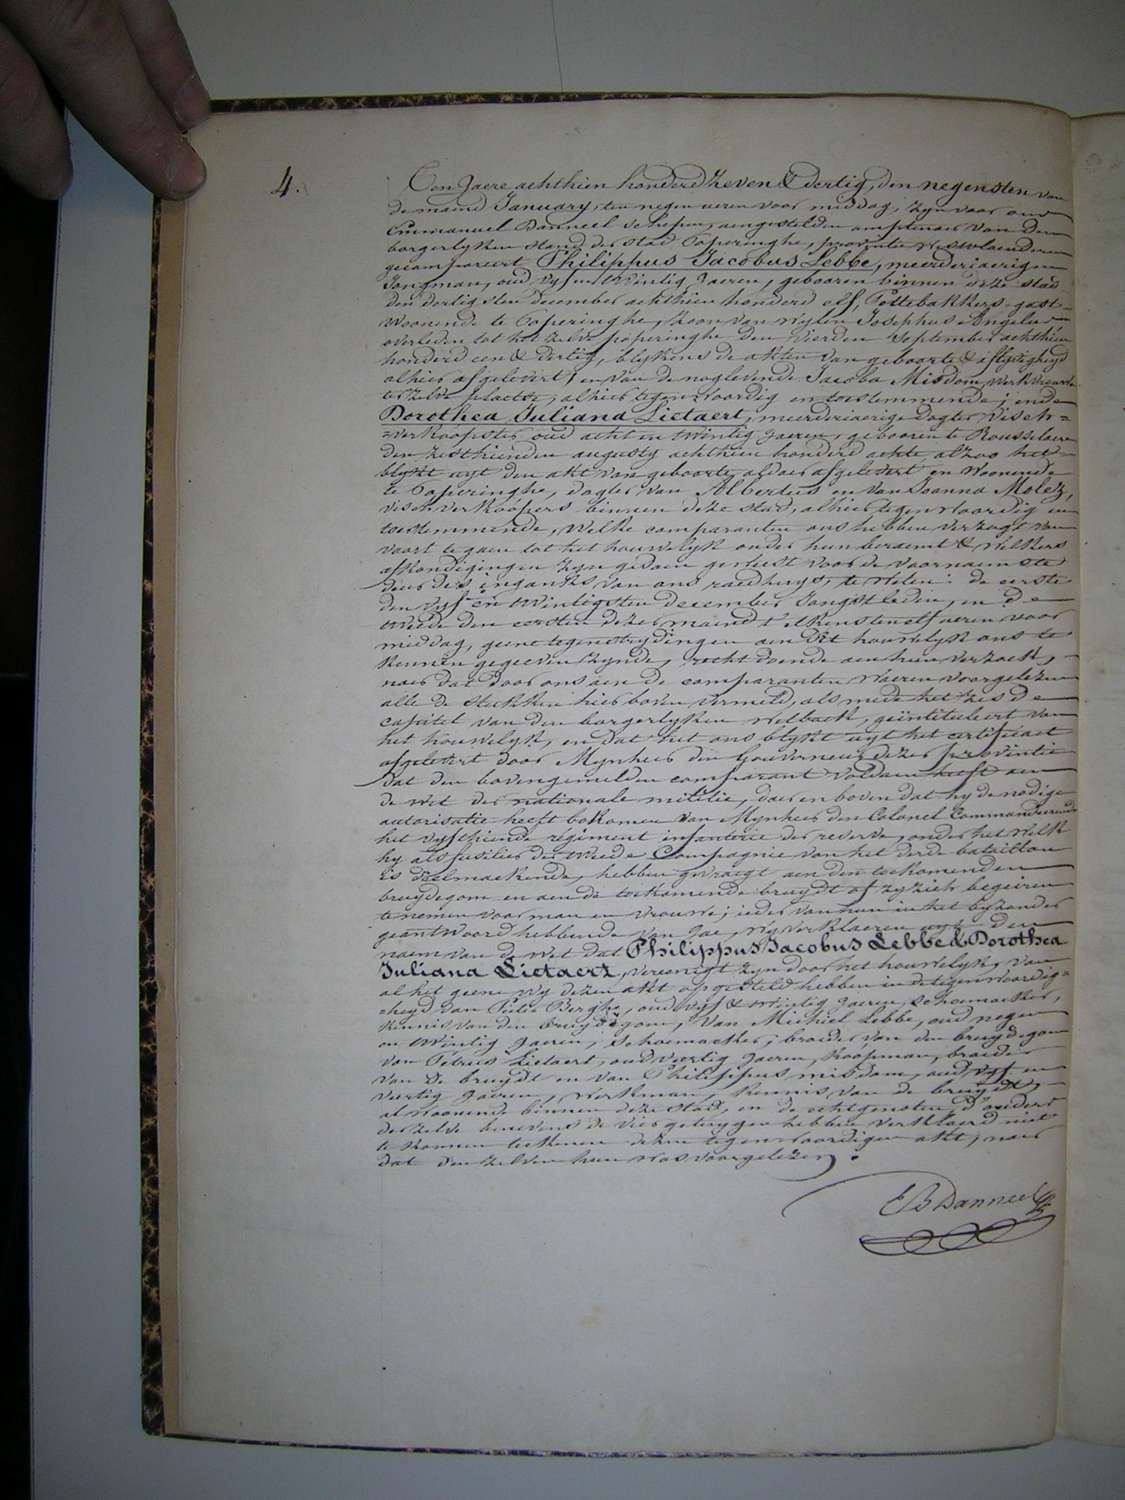 4.
Ten Jaere achthien honderd zeven & dertig, den negensten van
de maend January, ten negen ueren voor middag, zyn voor ons
Emmanuel Banneel schepen, aengestelden amptenaer van den
borgerlyken stand der stad Poperinghe, provintie Westvlaenderen
gecompareert Philippus Jacobus Lebbe, meerderjaerigen
Jongman, oud vyf en twintig Jaeren, gebooren binnen deze stad
den dertigsten december achthien honderd elf, Pottebakkers gast
woonende te Poperinghe, zoon van wylen Josephus Angelus
overleden tot het zelve poperinghe den vierden September achthien
honderd een & dertig, blykens de akten van geboorte & aflyvigheyd
alhier afgelevert, en van de noglevende Jacoba Misdom, werkvrouw
ter zelve plaetse, alhier tegenwoordig en toestemmende; ende
Dorothea Juliana Lietaert, meerderjaerige dogter visch=
=verkoopster oud acht en twintig jaeren, gebooren te Rousselaere
den zesthienden augusty achthien honderd achte, alzoo het
blykt uyt den akt van geboorte aldaer afgelevert en woonende
te Poperinghe, dogter van Albertus en van Joanna Molez,
vischverkoopers binnen deze stad, alhier tegenwoordig en
toestemmende, welke comparanten ons hebben verzogt van
voort te gaen tot het houwelyk onder hun beraemt & welkers
afkondigingen zyn gedaen geweest voor de voornaemste
deur des ingangks van ons raedhuys, te weten: de eerste
den vyf en twintigsten december Jongstleden, en de
tweede den eersten dezer maend t'elkensten elf ueren voor
middag, geene tegenstrydingen aen dit houwelyk ons te
kennen gegeeven zynde, recht doende aen hun verzoek,
naer dat door ons aen de comparanten waeren voorgelezen
alle de stukken hier boven vermeld, als mede het zesde
capitel van den borgerlyken wetboek, geïntituleert van
het houwelyk, en dat het ons blykt uyt het certificaet
afgelevert door Mynheer den Gouverneur dezer provintie
dat den bovengemelden comparant voldaen heeft aen
de wet der nationale militie, daer en boven dat hy de nodige
autorisatie heeft bekomen van Mynheer den Colonel Commandeerende
het vyfthiende régiment infanterie der reserve, onder het welk
hy als fusilier der tweede Compagnie van het derde bataillon
is deelmaekende, hebben gevraegt aen den toekomenden
bruydegom en aen de toekomende bruydt of zy zich begeiren
te nemen voor man en vrouwe; ieder van hun in het byzonder
geantwoord hebbende van Jae, wy verklaeren uyt den
naem van de wet dat Philippus Jacobus Lebbe & Dorothea
Juliana Lietaert, vereenigt zyn door het houwelyk, van
al het geene wy dezen akt opgesteld hebben in de tegenwoordig=
=heyd van Pieter Berghe, oud vyf & twintig jaeren, schoemaeker,
kennis van den bruydegom, van Michiel Lebbe, oud negen
en twintig jaeren, schoemaeker, broeder van den bruydegom
van Petrus Lietaert, oud veertig jaeren, koopman, broeder
van de bruydt en van Philippus misdom, oud vyf en
veertig jaeren, werkman, kennis van de bruydt,
al woonende binnen deze stad, en de echtgenoten, d'ouders
der zelve benevens de vier getuygen hebben verklaerd niet
te konnen teekenen dezen tegenwoordigen akt, naer
dat den zelven hun was voorgelezen.
EBanneel